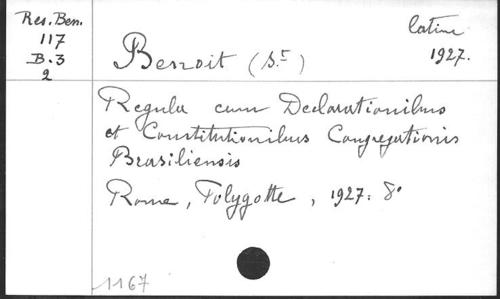 Res. Ben.
117
B.3
2
latine
1927.
Benoit (St)
Regula cum Declarationibus
et Constitutionibus Congregationis
Brasiliensis
Rome, Polygotte, 1927. 8°
1167